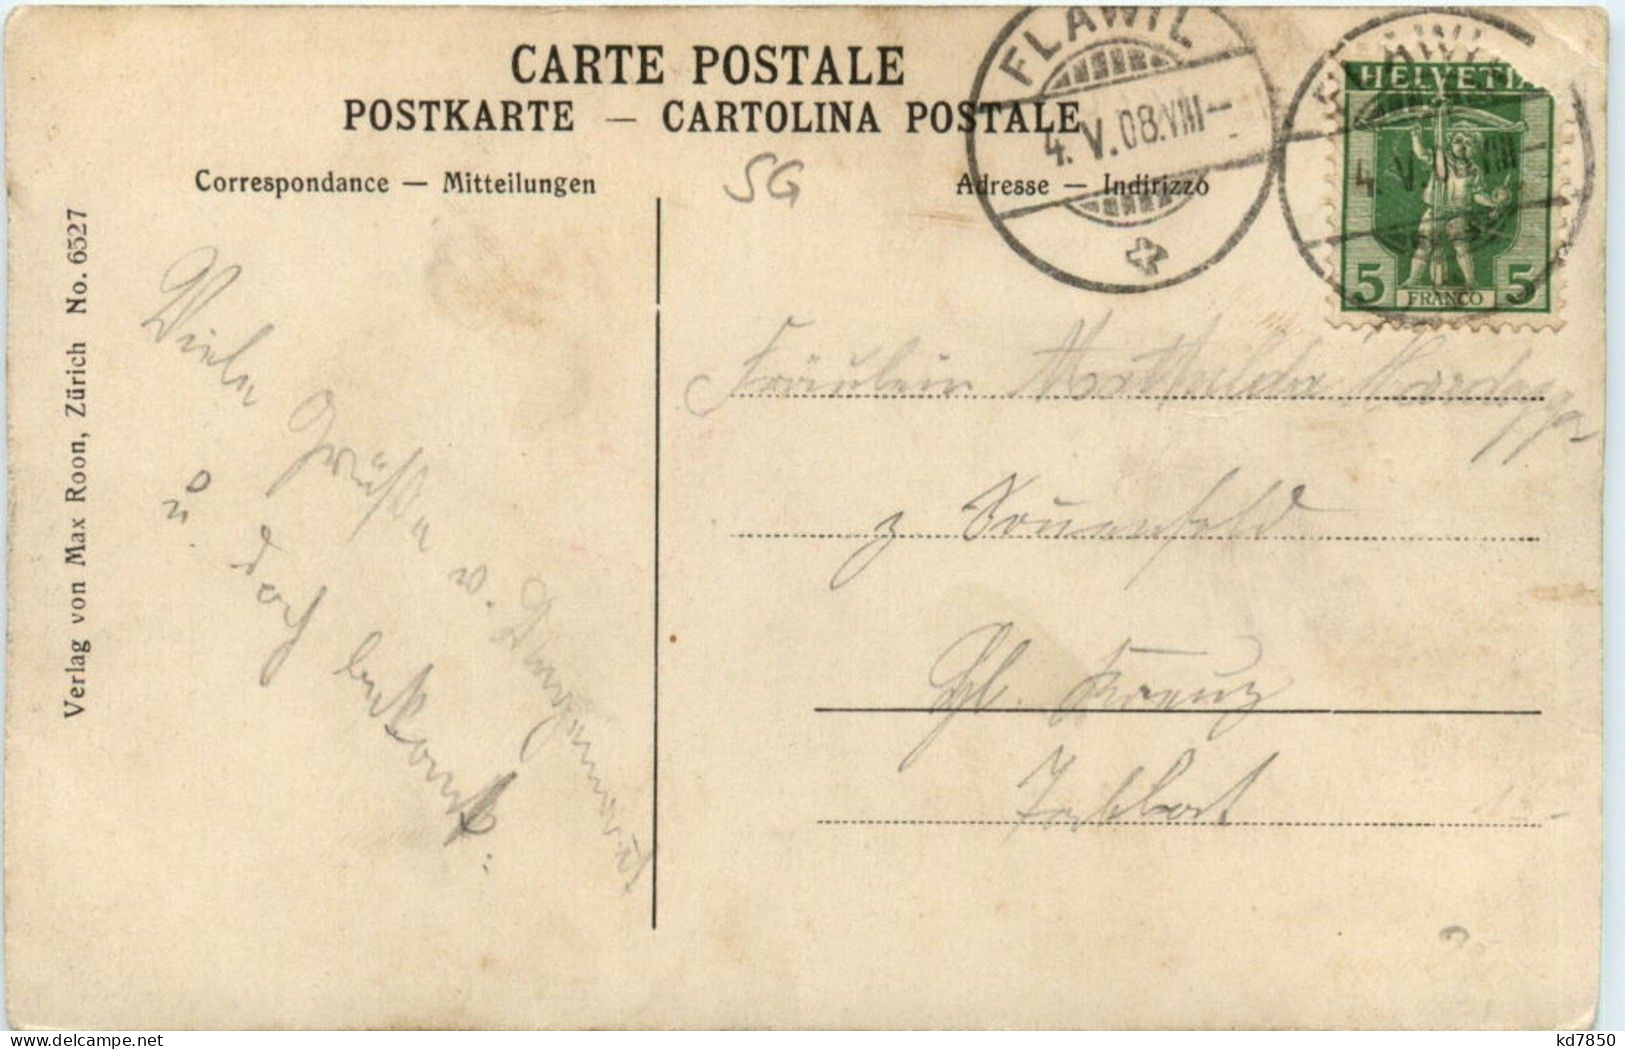 CARTE POSTALE
POSTKARTE — CARTOLINA POSTALE
Correspondance — Mitteilungen
Adresse — Indirizzo
SG
FLAWIL
4. V. 08. VIII —
4. V. 08. VIII
HELVETI
5 FRANCO 5
Verlag von Max Roon, Zürich No. 6527
Viele
Grüße v.
u. doch bekannt.
Fräulein Mathilde
z.
Kreuz
kd7850